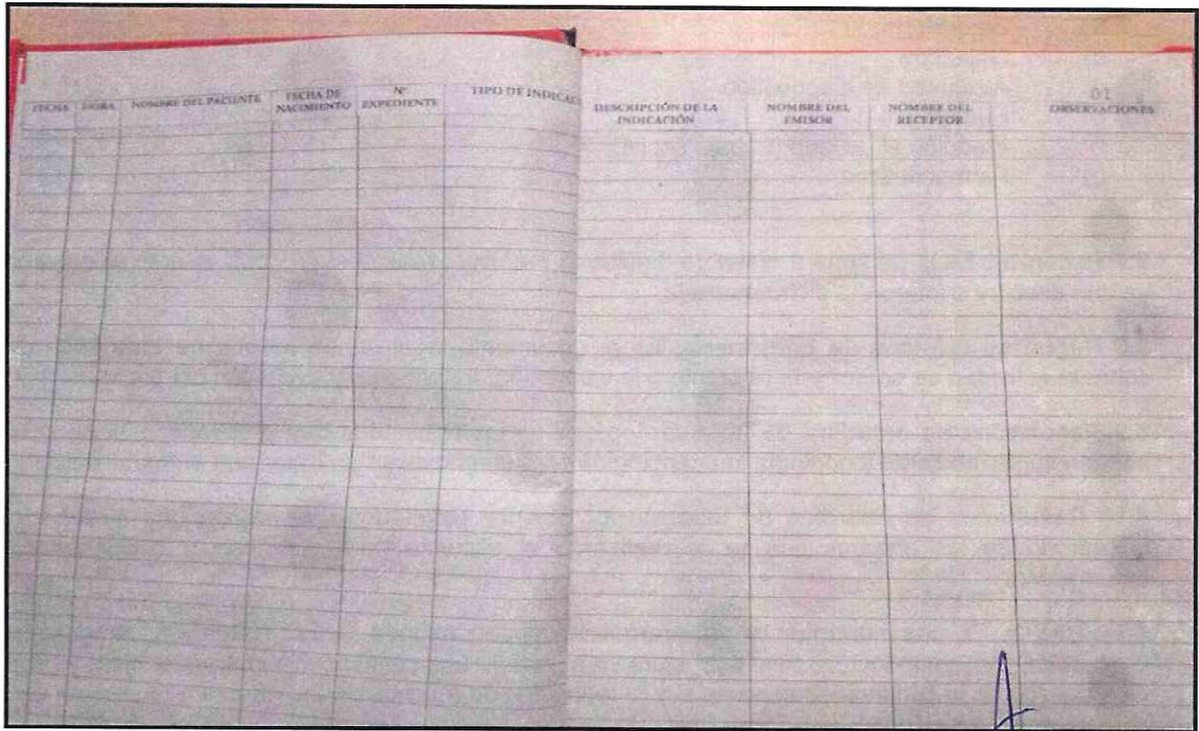 FECHA HORA NOMBRE DEL PACIENTE FECHA DE NACIMIENTO N° EXPEDIENTE TIPO DE INDICAC
01
DESCRIPCIÓN DE LA INDICACIÓN NOMBRE DEL EMISOR NOMBRE DEL RECEPTOR OBSERVACIONES